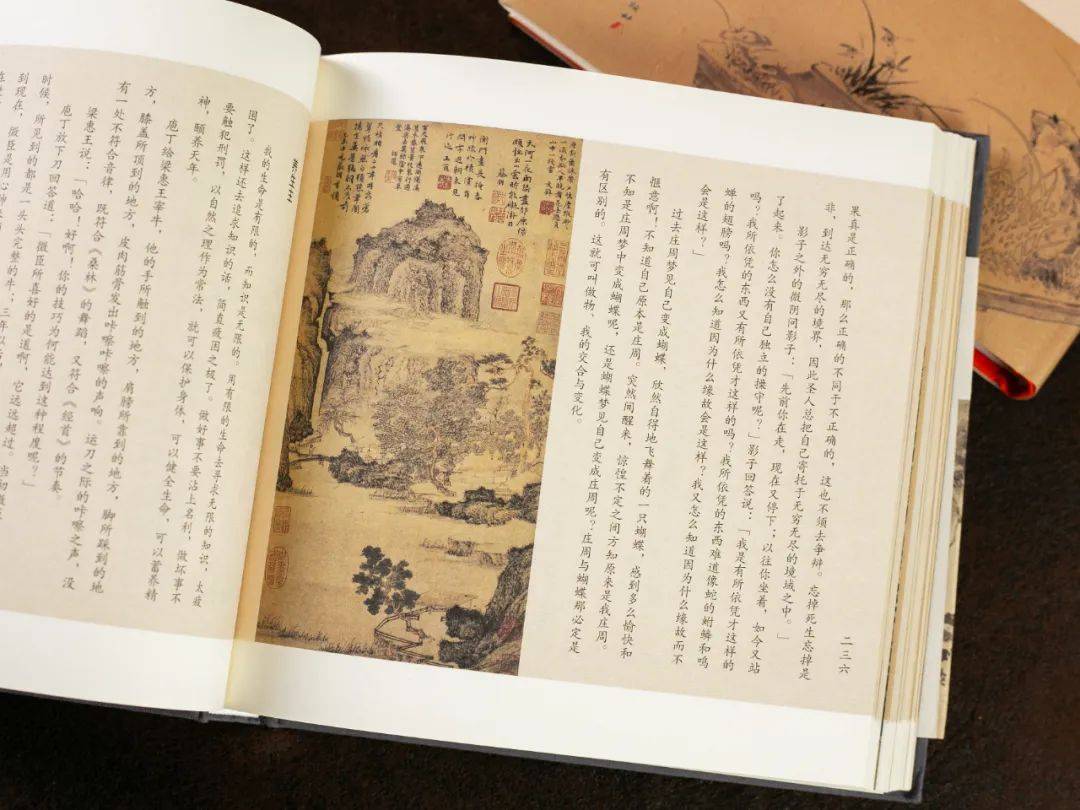 二三六
果真是正确的，那么正确的不同于不正确的，这也不须去争辩。忘掉死生忘掉是
非，到达无穷无尽的境界，因此圣人总把自己寄托于无穷无尽的境域之中。」
影子之外的微阴问影子：「先前你在走，现在又停下；以往你坐着，如今又站
了起来。你怎么没有自己独立的操守呢？」影子回答说：「我是有所依凭才这样的
吗？我所依凭的东西又有所依凭才这样的吗？我所依凭的东西难道像蛇的蚹鳞和鸣
蝉的翅膀吗？我怎么知道因为什么缘故会是这样？我又怎么知道因为什么缘故而不
会是这样？」
过去庄周梦见自己变成蝴蝶，欣然自得地飞舞着的一只蝴蝶，感到多么愉快和
惬意啊，不知道自己原本是庄周。突然间醒来，惊惶不定之间方知原来是我庄周。
不知是庄周梦中变成蝴蝶呢，还是蝴蝶梦见自己变成庄周呢？庄周与蝴蝶那必定是
有区别的。这就可叫做物、我的交合与变化。
养生主
我的生命是有限的，而知识是无限的。用有限的生命去寻求无限的知识，太疲
困了。这样还去追求知识的话，简直疲困之极了。做好事不要沾上名利，做坏事不
要触犯刑罚，以自然之理作为常法，就可以保护身体，可以健全生命，可以蓄养精
神，颐养天年。
庖丁给梁惠王宰牛，他的手所触到的地方，肩膀所靠到的地方，脚所踩到的地
方，膝盖所顶到的地方，皮肉筋骨发出咔嚓咔嚓的声响。运刀之际的咔嚓之声，没
有一处不符合音律，既符合《桑林》的舞蹈，又符合《经首》的节奏。
梁惠王说：「哈哈，好啊，你的技巧为何能达到这种程度呢？」
庖丁放下刀回答道：「微臣所喜好的是道啊，它远远超过。当初微臣
时候，所见到的都是一头头完整的牛；三年以后，
到现在，微臣是用心神